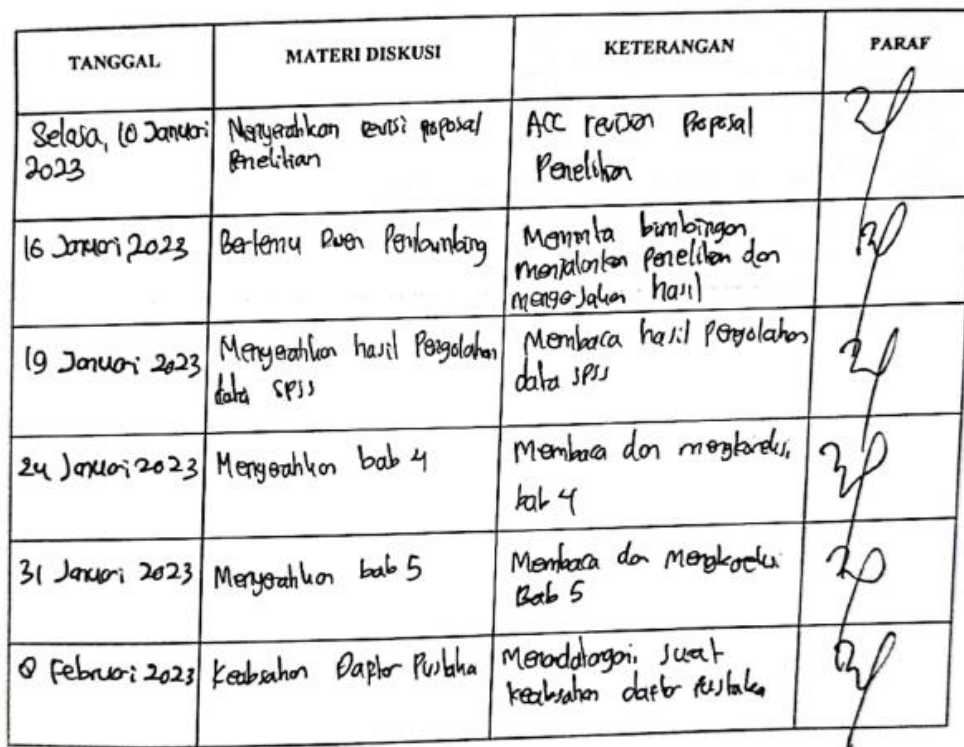 TANGGAL MATERI DISKUSI KETERANGAN PARAF
Selasa, 10 Januari
2023
Menyerahkan revisi proposal
Penelitian
ACC revisi Proposal
Penelitian
16 Januari 2023
Bertemu Dosen Pembimbing
Meminta bimbingan
menjalankan penelitian dan
mengerjakan hasil
19 Januari 2023
Menyerahkan hasil Pengolahan
data SPSS
Membaca hasil Pengolahan
data SPSS
24 Januari 2023
Menyerahkan bab 4
Membaca dan mengkoreksi
bab 4
31 Januari 2023
Menyerahkan bab 5
Membaca dan Mengkoreksi
Bab 5
Februari 2023
Keabsahan Daftar Pustaka
Menandatangani surat
keabsahan daftar pustaka